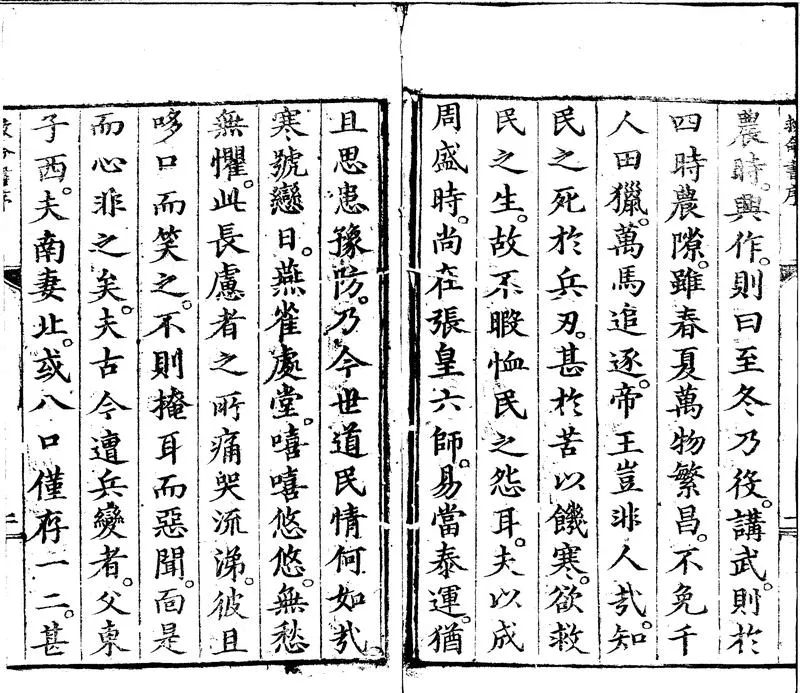 救命書序
農時。興作。則曰至冬乃役。講武。則於
四時農隙。雖春夏萬物繁昌。不免千
人田獵。萬馬追逐。帝王豈非人哉。知
民之死於兵刃。甚於苦以饑寒。欲救
民之生。故不暇恤民之怨耳。夫以成
周盛時。尚在張皇六師。易當泰運。猶
且思患豫防。乃今世道民情何如哉。
寒號戀日。燕雀處堂。嘻嘻悠悠。無愁
無懼。此長慮者之所痛哭流涕。彼且
哆口而笑之。不則掩耳而惡聞。面是
而心非之矣。夫古今遭兵變者。父東
子西。夫南妻北。或八口僅存一二。甚
救命書序
二